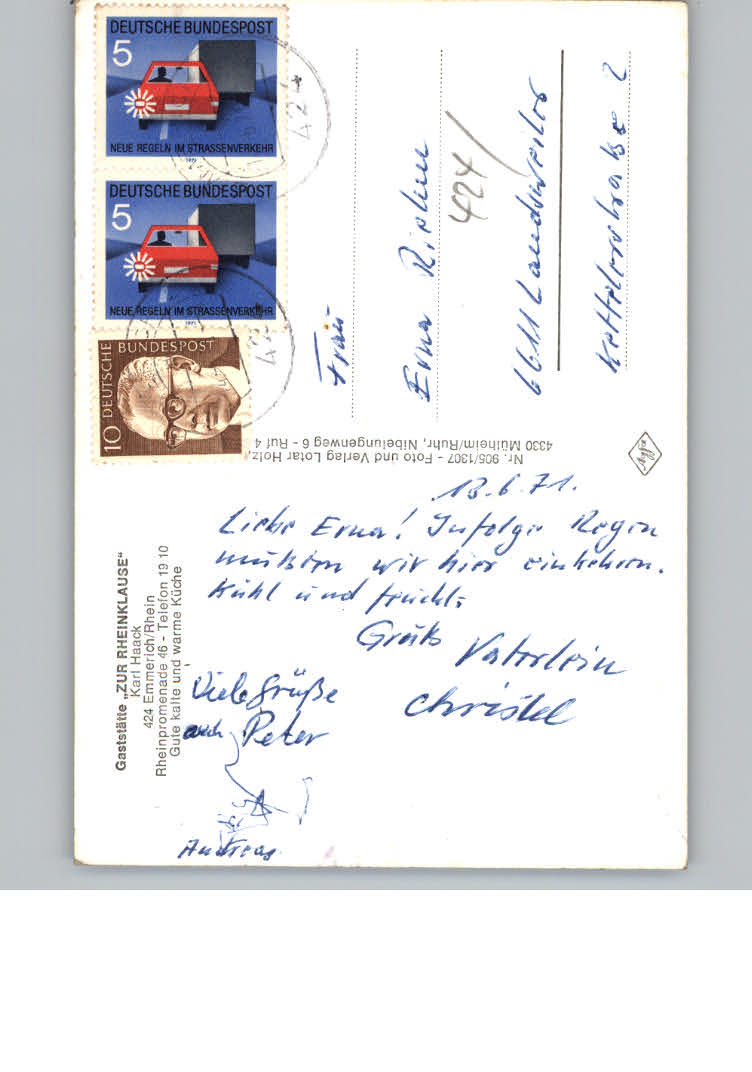 DEUTSCHE BUNDESPOST
5
NEUE REGELN IM STRASSENVERKEHR
1971
DEUTSCHE BUNDESPOST
5
NEUE REGELN IM STRASSENVERKEHR
1971
DEUTSCHE BUNDESPOST
10
424
42
Frau
Erna
424/
6611 Landsweiler
Kettelerstraße 2
Nr. 905/1307 - Foto und Verlag Lotar Holz,
4330 Mülheim/Ruhr, Nibelungenweg 6 - Ruf 4
Agfa
Gaststätte „ZUR RHEINKLAUSE"
Karl Haack
424 Emmerich/Rhein
Rheinpromenade 46 - Telefon 19 10
Gute kalte und warme Küche
13.6.71.
Liebe Erna! Infolge Regen
mußten wir hier einkehren.
Kühl und feucht.
Gruß Vaterlein
Christel
Viele Grüße
auch Peter
Andreas